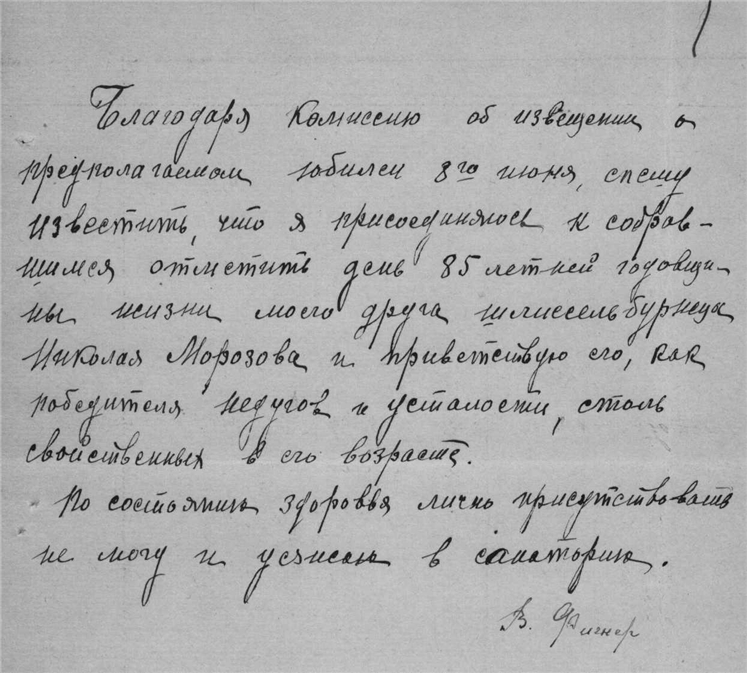 Благодаря Комиссию об извещении о
предполагаемом юбилеи 8го июня, спешу
известить, что я присоединяюсь к собрав-
шимся отметить день 85 летней годовщи-
ны жизни моего друга шлиссельбуржца
Николая Морозова и приветствую его, как
победителя недугов и усталости, столь
свойственных в его возрасте.
По состоянию здоровья лично присутствовать
не могу и уезжаю в санаторию.
В. Фигнер